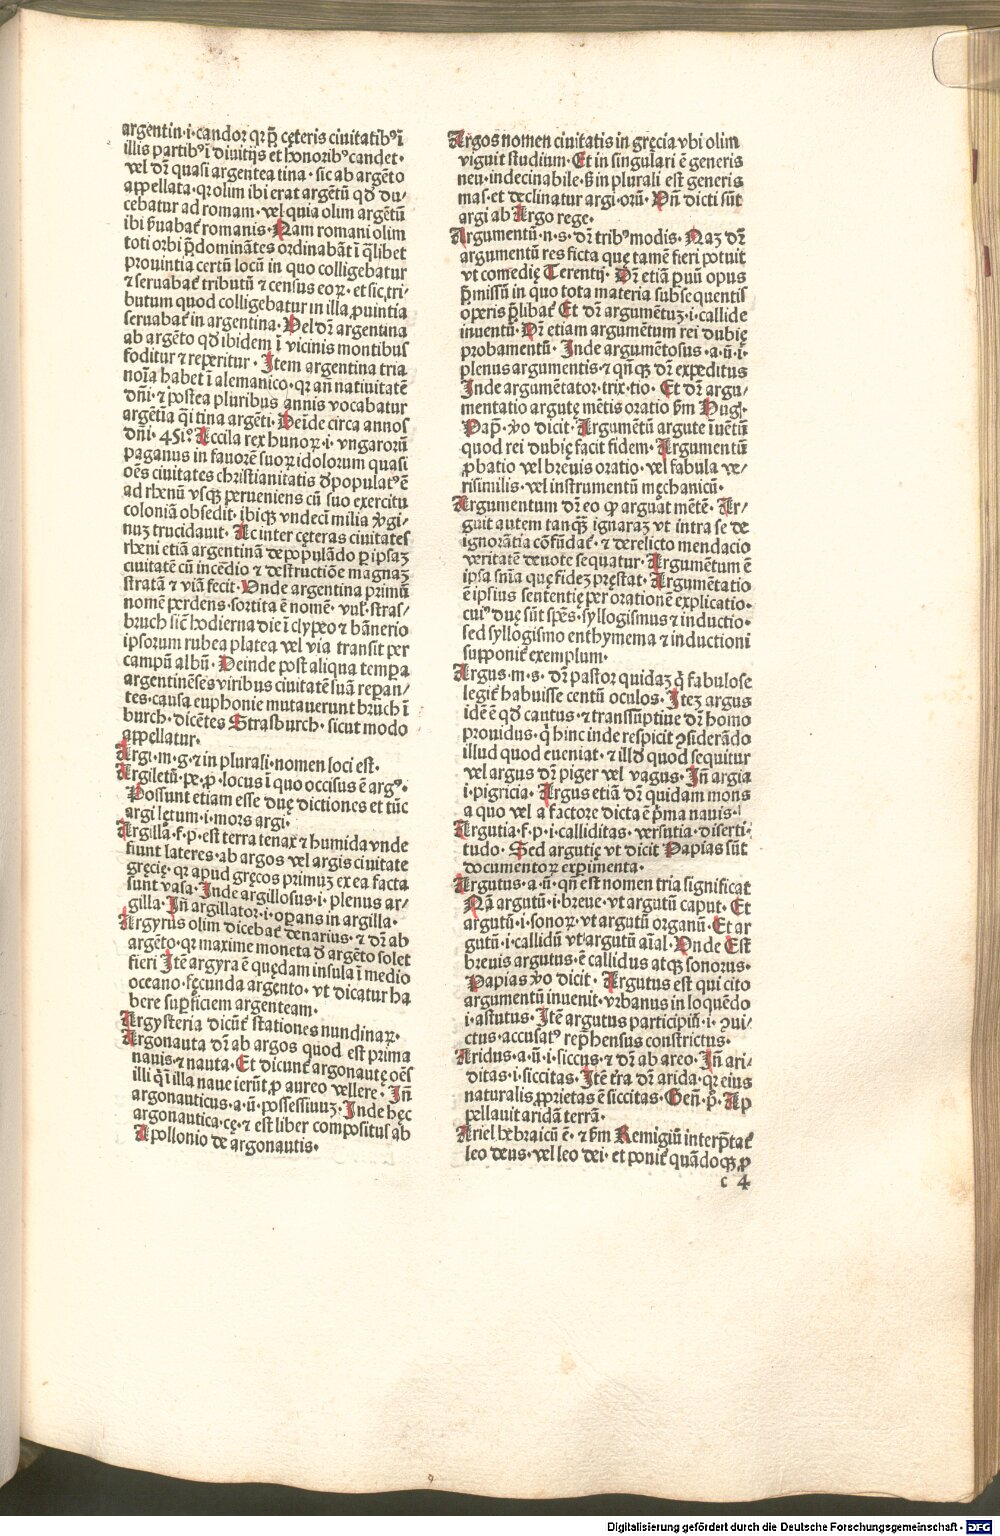 argentin·i·candor qꝛ p̄ cęteris ciuitatibꝰ ī
illis partibꝰ ī diuitijs et honoribꝰ candet·
vel dr̄ quasi argentea tina· sic ab argēto
appellata· qꝛ olim ibi erat argētū qd̄ du/
cebatur ad romam· vel quia olim argētū
ibi p̄uabat᷑ romanis· Nam romani olim
toti orbi p̄dominātes ordinabāt ī q̄libet
prouintia certū locū in quo colligebatur
⁊ seruabat᷑ tributū ⁊ census eoꝝ· et sic, tri/
butum quod colligebatur in illa ꝓuintia
seruabat᷑ in argentina· Vel dr̄ argentina
ab argēto qd̄ ibidem ī vicinis montibus
foditur ⁊ reperitur· Item argentina tria
noīa habet ī alemanico· qꝛ an̄ natiuitatē
dn̄i· ⁊ postea pluribus annis vocabatur
argētīa q̄i tina argēti· Deīde circa annos
dn̄i· 451º· Accila rex hunoꝝ·i· vngaroꝝū
paganus in fauorē suoꝝ idolorum quasi
oēs ciuitates christianitatis d̄populatꝰ ē
ad rhenū vsqꝫ perueniens cū suo exercitu
coloniā obsedit· ibiqꝫ vndecī milia v̄gi/
nuꝫ trucidauit· Ac inter cęteras ciuitates
rheni etiā argentinā depopulādo ꝑ ipsaꝫ
ciuitatē cū incēdio ⁊ destructiōe magnaꝫ
stratā ⁊ viā fecit· Vnde argentina primū
nomē perdens· sortita ē nomē· vulꝭ· stras/
bruch sic̄ hodierna die ī clypeo ⁊ bānerio
ipsorum rubea platea vel via transit per
campū albū· Deinde post aliqua tempꝑa
argentinēses viribus ciuitatē suā reparan/
tes· causa euphonie mutauerunt bruch ī
burch· dicētes Strasburch· sicut modo
appellatur·
Argi·m·g·⁊ in plurali· nomen loci est·
Argiletū·pe·ꝓ·locus ī quo occisus ē argꝰ·
Possunt etiam esse duę dictiones et tūc
argi lętum·i·mors argi·
Argilla·f·p·est terra tenax ⁊ humida vnde
fiunt lateres· ab argos vel argis ciuitate
gręcię· qꝛ apud gręcos primuꝫ ex ea facta
sunt vasa· Inde argillosus·i·plenus ar/
gilla· Iñ argillator·i·oꝑans in argilla·
Argyrus olim dicebat᷑ denarius· ⁊ dr̄ ab
argēto· qꝛ maxime moneta d̄ argēto solet
fieri Itē argyra ē quędam insula ī medio
oceano· fęcunda argento· vt dicatur ha
bere suꝑficiem argenteam·
Argysteria dicūt᷑ stationes nundinaꝝ·
Argonauta dr̄ ab argos quod est prima
nauis·⁊ nauta· Et dicunt᷑ argonautę oēs
illi q̄ ī illa naue ierūt ꝓ aureo vellere· Iñ
argonauticus·a·ū·possessiuuꝫ· Inde hęc
argonautica·cę·⁊ est liber compositus ab
Apollonio de argonautis·
Argos nomen ciuitatis in gręcia vbi olim
viguit studium· Et in singulari ē generis
neu·indeclinabile· S̄ in plurali est generis
mas·et declinatur argi·orū· Vn̄ dicti sūt
argi ab Argo rege·
Argumentū·n·s·dr̄ tribꝰ modis· Naꝫ dr̄
argumentū res ficta quę tamē fieri potuit
vt comedię Terentij· Dr̄ etiā ꝑuū opus
p̄missū in quo tota materia subsequentis
operis p̄libat᷑ Et dr̄ argumētuꝫ·i·callide
inuentū· Dr̄ etiam argumētum rei dubię
probamentū· Inde argumētosus·a·ū·i·
plenus argumentis·⁊ qn̄qꝫ dr̄ expeditus
Inde argumētator·trix·tio· Et dr̄ argu/
mentatio argutę mētis oratio ẜm Hugꝭ·
Pap̄· v̄o dicit· Argumētū argute īuētū
quod rei dubię facit fidem· Argumentū
ꝓbatio vel breuis oratio· vel fabula ve/
risimilis· vel instrumentū męchanicū·
Argumentum dr̄ eo ꝙ arguat mētē· Ar/
guit autem tanqꝫ̄ ignaraꝫ vt intra se de
ignorātia cōfūdat᷑·⁊ derelicto mendacio
veritatē deuote sequatur· Argumētum ē
ipsa sn̄ia quę fideꝫ pręstat· Argumētatio
ē ipsius sententię per orationē explicatio·
cuiꝰ duę sūt spēs· syllogismus ⁊ inductio·
sed syllogismo enthymema ⁊ inductioni
supponit᷑ exemplum·
Argus·m·s·dr̄ pastor quidaꝫ q̄ fabulose
legit᷑ habuisse centū oculos· Iteꝫ argus
idē ē qd̄ cautus·⁊ transsūptiue dr̄ homo
prouidus· q̇ hinc inde respicit ꝯsiderādo
illud quod eueniat·⁊ illd̄ quod sequitur
vel argus dr̄ piger vel vagus· Iñ argia
i·pigricia· Argus etiā dr̄ quidam mons
a quo vel a factore dicta ē p̄ma nauis·
Argutia·f·p·i·calliditas· versutia· diserti/
tudo· Sed argutię vt dicit Papias sūt
documentoꝝ exꝑimenta·
Argutus·a·ū·qn̄ est nomen tria significat
Nā argutū·i·breue· vt argutū caput· Et
argutū·i·sonoꝝ· vt argutū organū· Et ar
gutū·i·callidū vt argutū aīal· Vnde Est
breuis argutus·ē callidus atqꝫ sonorus·
Papias v̄o dicit· Argutus est qui cito
argumentū inuenit· vrbanus in loquēdo
i·astutus· Itē argutus participiū·i·ꝯui/
ctus·accusatꝰ rep̄hensus constrictus·
Aridus·a·ū·i·siccus·⁊ dr̄ ab areo· Iñ ari/
ditas·i·siccitas· Itē tr̄a dr̄ arida·qꝛ eius
naturalis ꝓprietas ē siccitas· Gen̄·p̄· Ap
pellauit aridā terrā·
Ariel hebraicū ē·⁊ ẜm Remigiū interp̄tat᷑
leo deus· vel leo dei· et ponit᷑ quādoqꝫ ꝓ
c 4
Digitalisierung gefördert durch die Deutsche Forschungsgemeinschaft - DFG